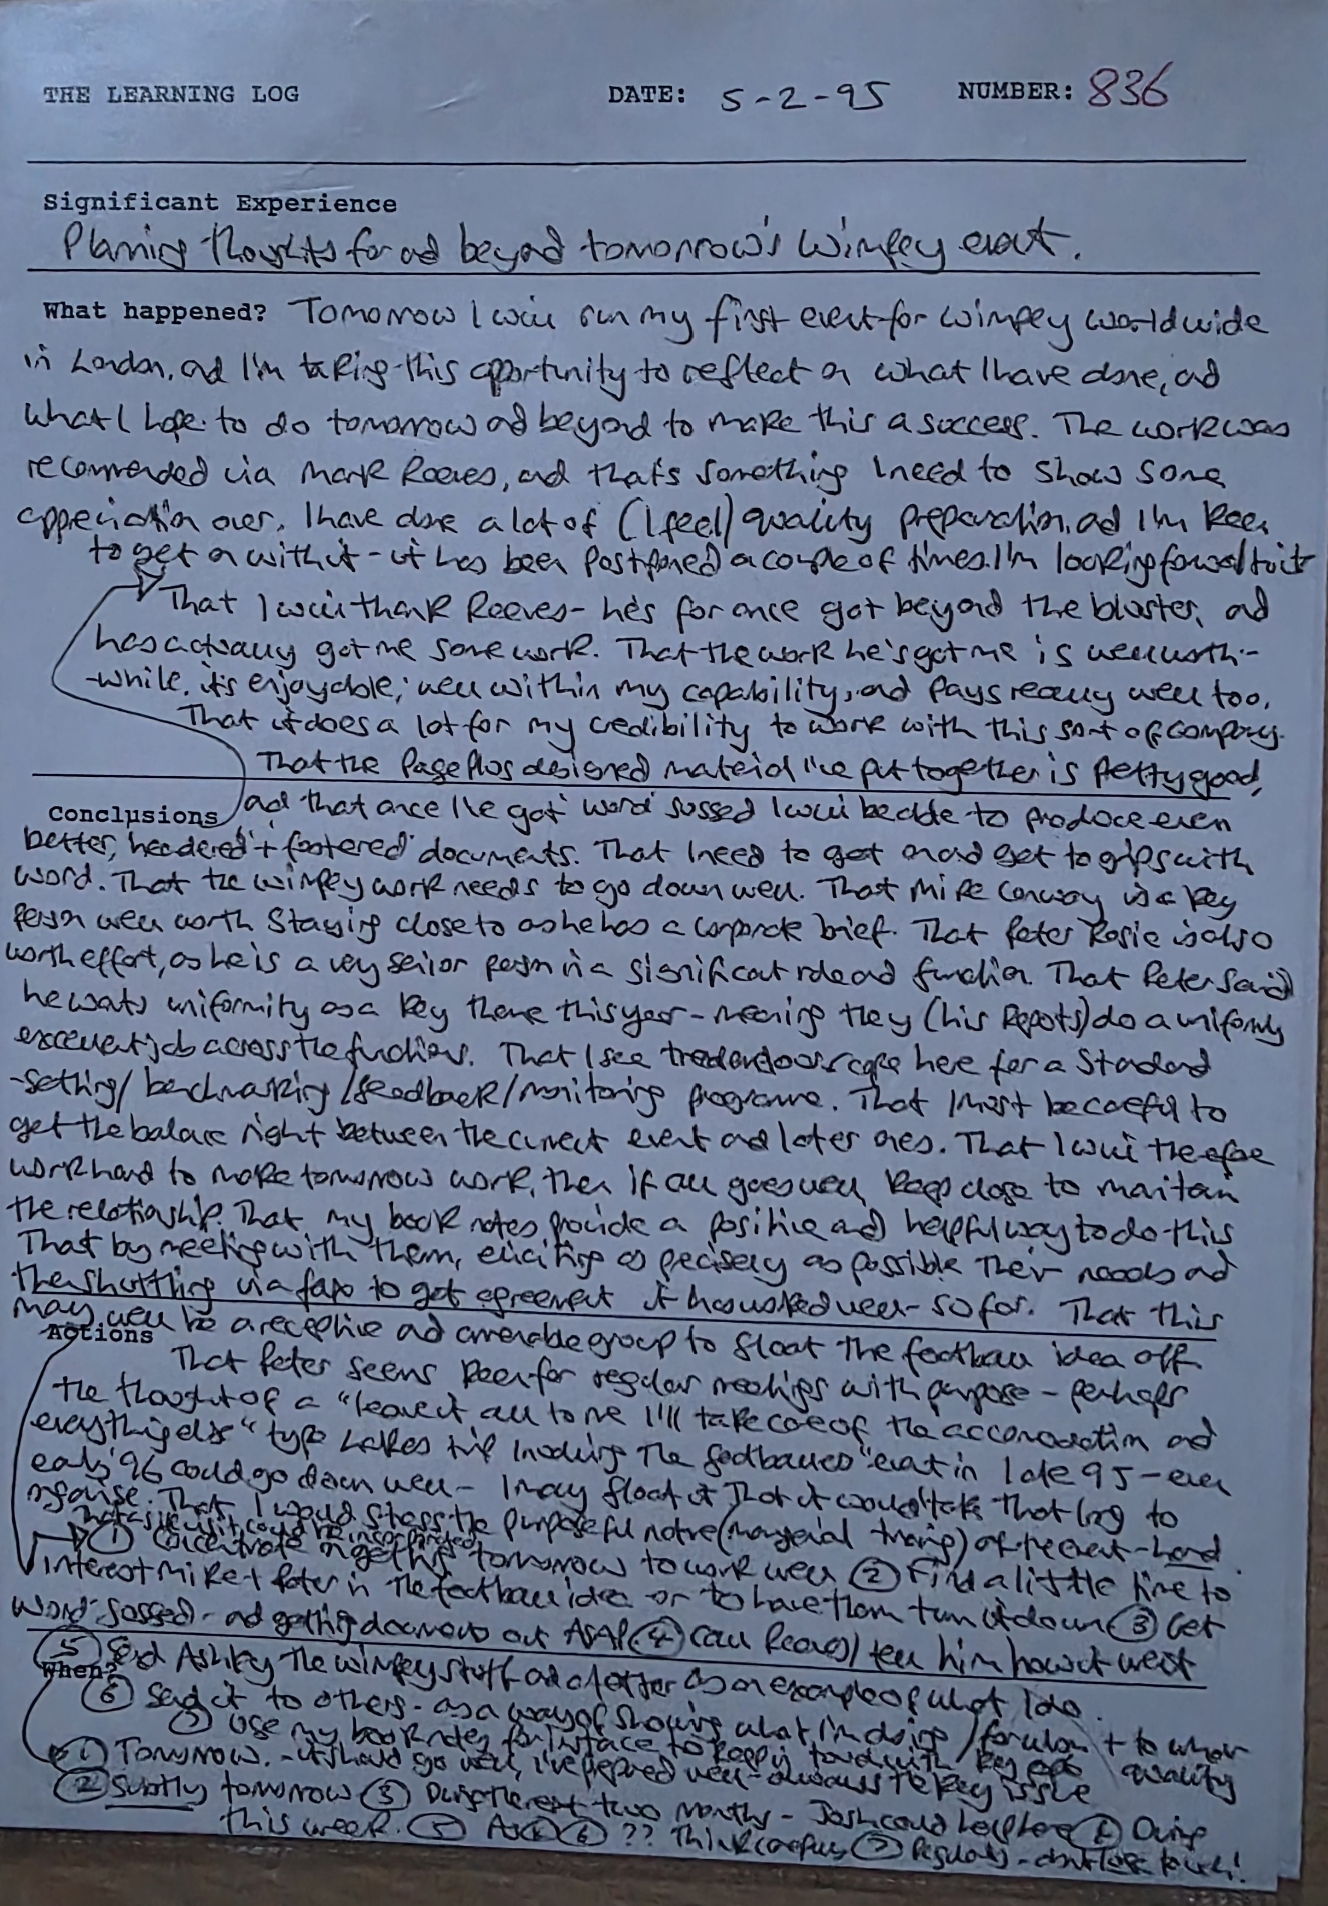 THE LEARNING LOG DATE: 5-2-95 NUMBER: 836
Significant Experience
Planning thoughts for and beyond tomorrow's Wimpey event.
What happened? Tomorrow I will run my first event for Wimpey Worldwide
in London, and I'm taking this opportunity to reflect on what I have done, and
what I hope to do tomorrow and beyond to make this a success. The work was
recommended via Mark Reeves, and that's something I need to show some
appreciation over. I have done a lot of (I feel) quality preparation, and I'm keen
to get on with it - it has been postponed a couple of times. I'm looking forward to it
That I will thank Reeves - he's for once got beyond the bluster, and
has actually got me some work. That the work he's got me is well worth-
-while, it's enjoyable, well within my capability, and pays really well too.
That it does a lot for my credibility to work with this sort of company.
That the PagePlus designed material I've put together is pretty good,
Conclusions and that once I've got 'Word' sussed I will be able to produce even
better, 'headered + footered' documents. That I need to get on and get to grips with
Word. That the Wimpey work needs to go down well. That Mike Conway is a key
person well worth staying close to as he has a corporate brief. That Peter Rosie is also
worth effort, as he is a very senior person in a significant role and function. That Peter said
he wants uniformity as a key theme this year - meaning they (his Reports) do a uniformly
excellent job across the functions. That I see tremendous scope here for a standard
-setting/ benchmarking /feedback/monitoring programme. That I must be careful to
get the balance right between the current event and later ones. That I will therefore
work hard to make tomorrow work, then if all goes well, keep close to maintain
the relationship. That my book notes provide a positive and helpful way to do this
That by meeting with them, eliciting as precisely as possible their needs and
then shuttling via fax to get agreement it has worked well - so far. That this
may well be a receptive and amenable group to float the football idea off
Actions
That Peter seems keen for regular meetings with purpose - perhaps
the thought of a "leave it all to me I'll take care of the accommodation and
everything else" type Lakes trip including the footballed "event in late 95 - even
early '96 could go down well - I may float it That it wouldn't take that long to
organise. That I would stress the purposeful nature (managerial training) of the event - hard
① Concentrate on getting tomorrow to work well ② Find a little time to
interest Mike + Peter in the football idea or to have them turn it down ③ Get
Word sussed - and getting documents out ASAP ④ Call Reeves/ tell him how it went
⑤ Send Ashley the Wimpey stuff and a letter as an example of what I do.
When?
⑥ Send it to others - as a way of showing what I'm doing /for whom + to what
quality
⑦ Use my book notes to keep in touch with key
① Tomorrow. - it should go well, I've prepared well - always the key issue
② Subtly tomorrow ③ During the next two months - Josh could help here ④ During
this week. ⑤ As ④ ⑥ ?? Think carefully ⑦ Regularly - don't lose touch!